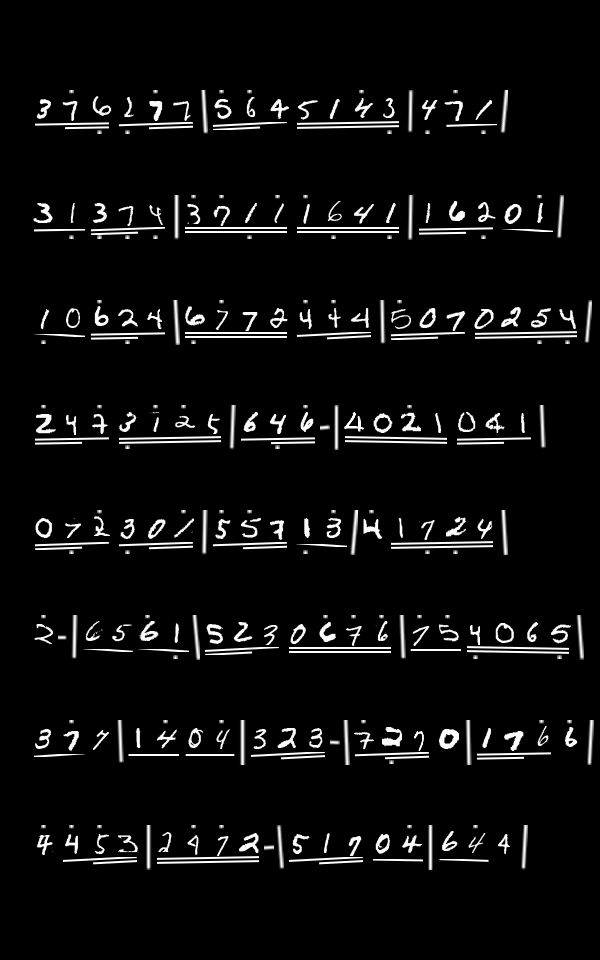 3 7 6 2 7 7 | 5 6 4 5 1 4 3 | 4 7 1 |
3 1 3 7 4 | 3 7 1 1 1 6 4 1 | 1 6 2 0 1 |
1 0 6 2 4 | 6 7 7 2 4 4 4 | 5 0 7 0 2 5 4 |
2 4 7 3 1 2 5 | 6 4 6 - | 4 0 2 1 0 4 1 |
0 7 2 3 0 1 | 5 5 7 1 3 | 4 1 7 2 4 |
2 - | 6 5 6 1 | 5 2 3 0 6 7 6 | 7 5 4 0 6 5 |
3 7 7 | 1 4 0 4 | 3 2 3 - | 7 2 7 0 | 1 7 6 6 |
4 4 5 3 | 2 4 7 2 - | 5 1 7 0 4 | 6 4 4 |